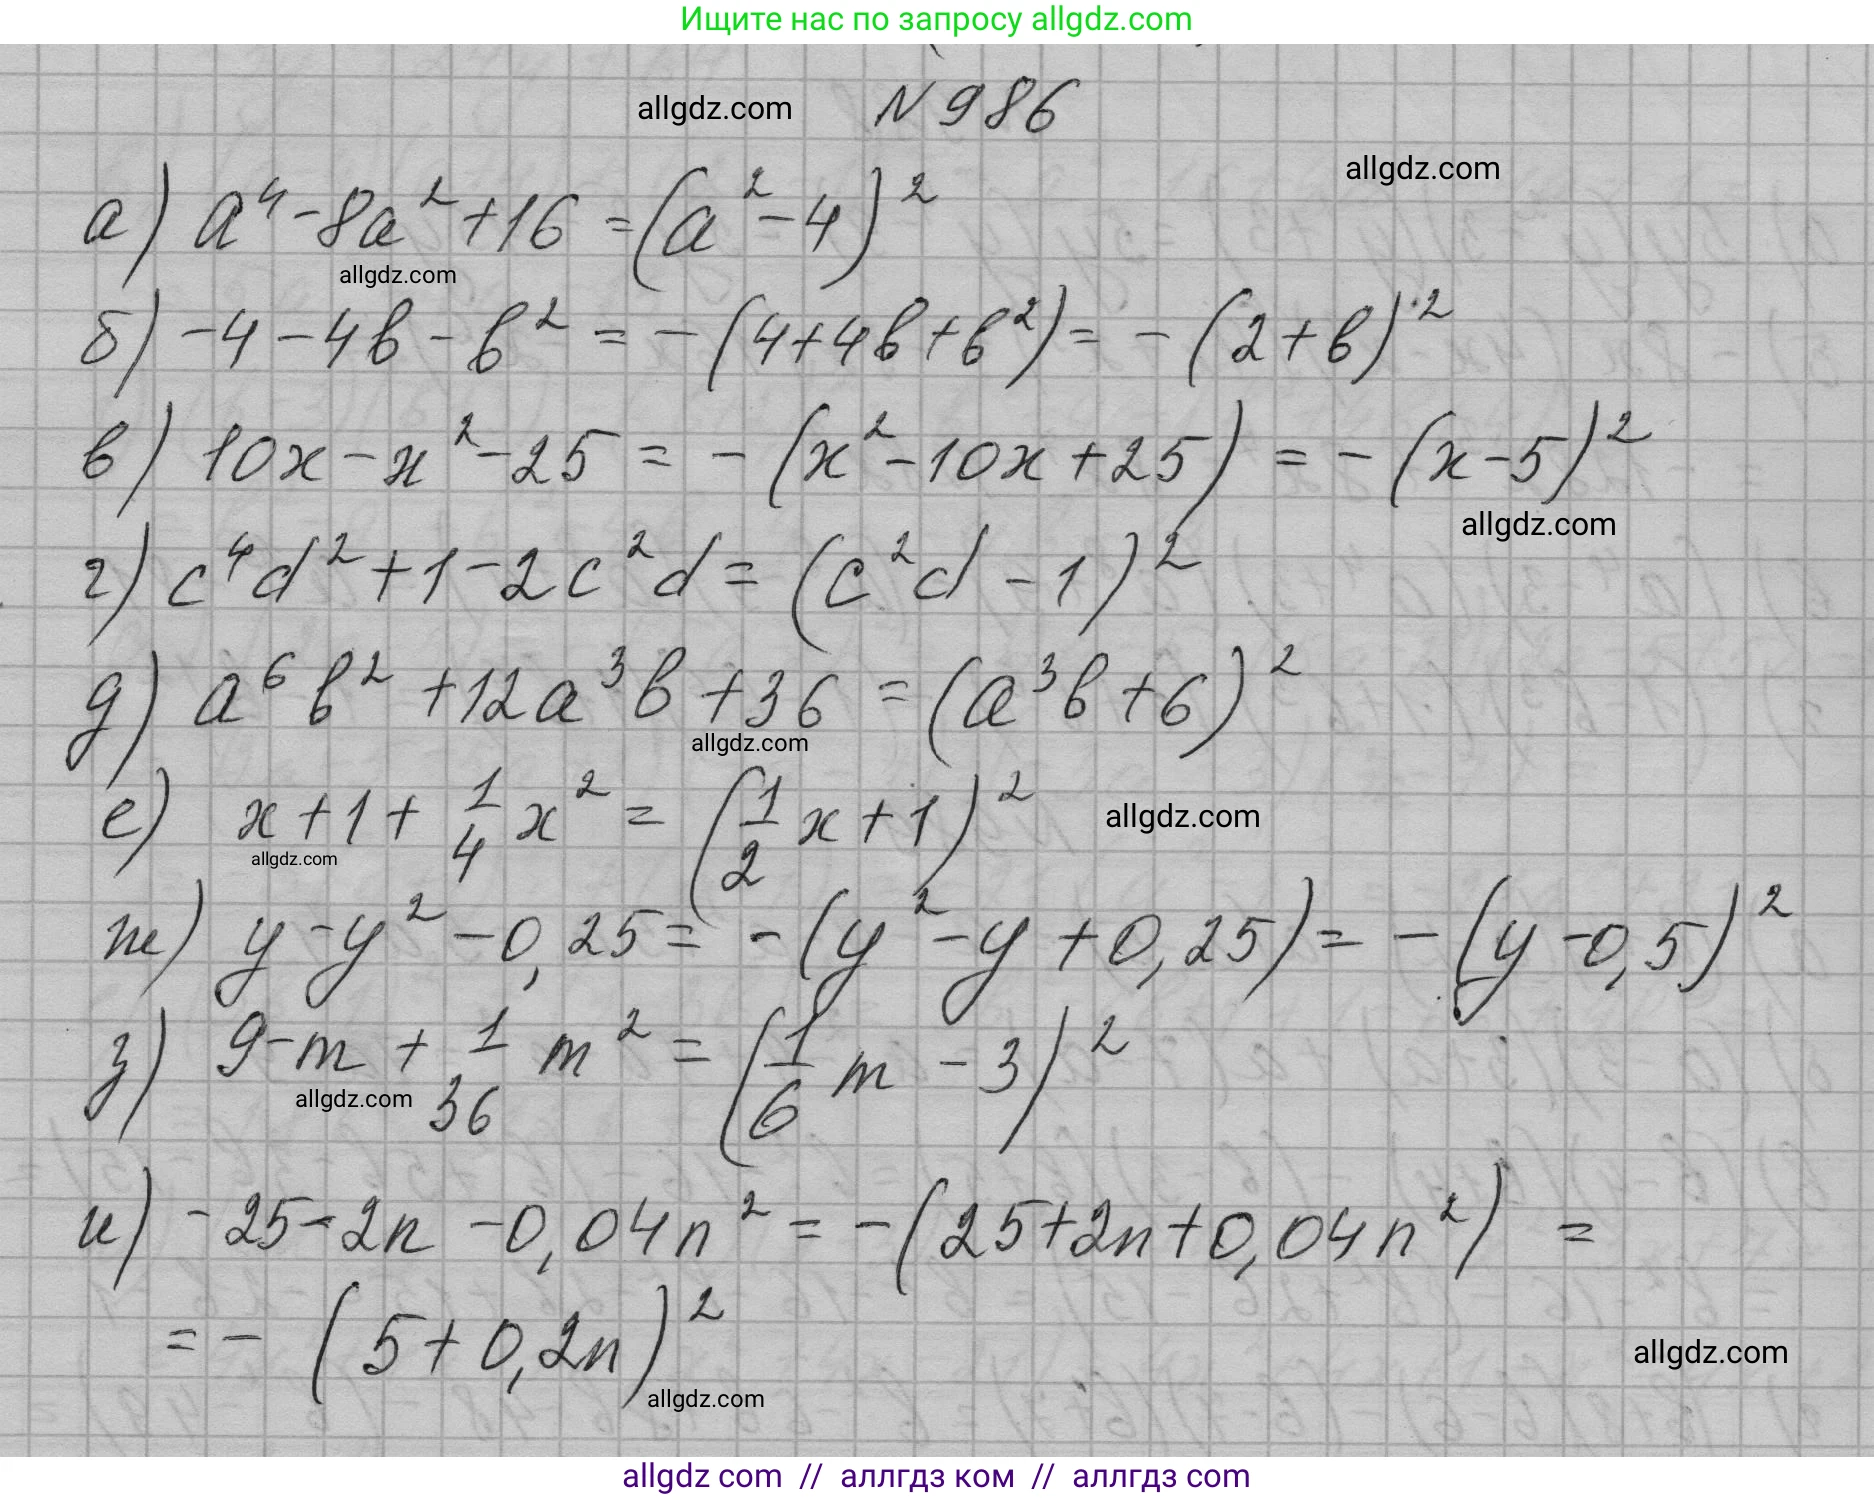 Ищите нас по запросу allgdz.com
allgdz.com № 986
allgdz.com
а) a⁴ - 8a² + 16 = (a² - 4)²
allgdz.com
б) -4 - 4b - b² = -(4 + 4b + b²) = -(2 + b)²
в) 10x - x² - 25 = -(x² - 10x + 25) = -(x - 5)²
allgdz.com
г) c⁴d² + 1 - 2c²d = (c²d - 1)²
д) a⁶b² + 12a³b + 36 = (a³b + 6)²
allgdz.com
е) x + 1 + 1/4 x² = (1/2 x + 1)²
allgdz.com
allgdz.com
ж) y - y² - 0,25 = -(y² - y + 0,25) = -(y - 0,5)²
з) 9 - m + 1/36 m² = (1/6 m - 3)²
allgdz.com
и) -25 - 2n - 0,04n² = -(25 + 2n + 0,04n²) =
= -(5 + 0,2n)²
allgdz.com
allgdz.com
allgdz com // аллгдз ком // аллгдз com